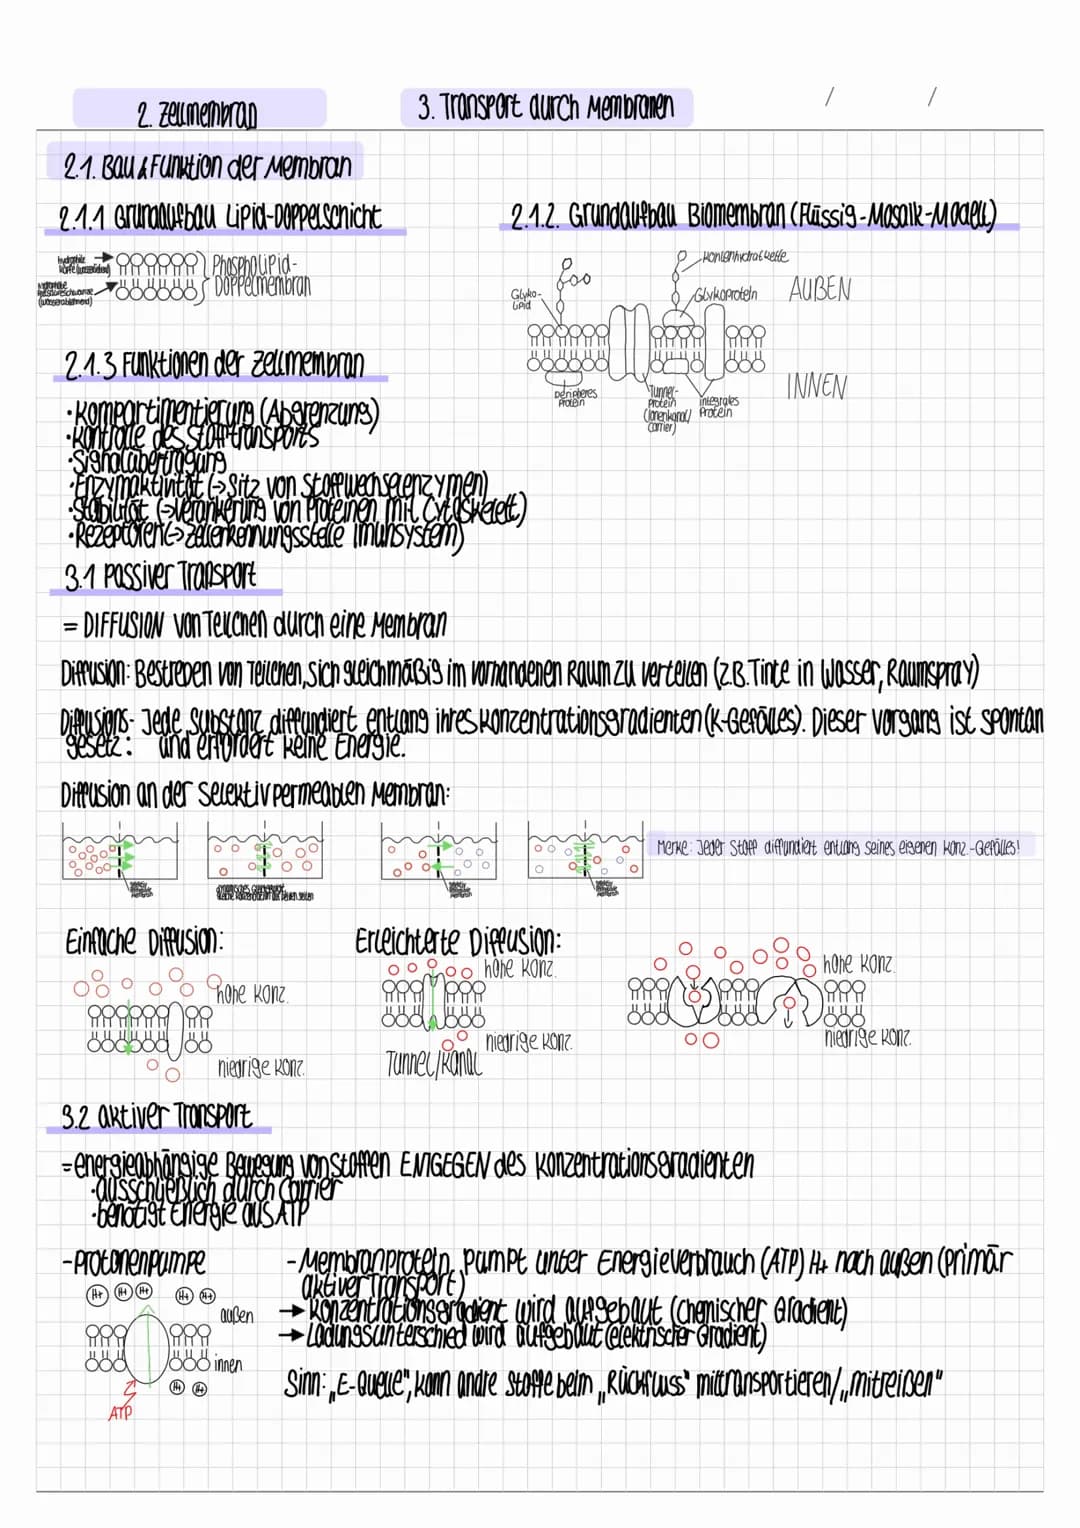 2. Zellmembran
3. Transport durch Membranen
2.1. Bau & Funktion der Membran
2.1.1 Grundaufbau Lipid-Doppelschicht
hydrophile Köpfe (wasserliebend)
hydrophobe Fettsäureschwänze (wasserabweisend)
Phospholipid-
Doppelmembran
2.1.2. Grundaufbau Biomembran (Flüssig-Mosaik-Modell)
Kohlenhydratkette
Glyko-
Lipid
Glykoprotein
AUßEN
INNEN
peripheres
Protein
Tunnel-
Protein
(Ionenkanal/
Carrier)
integrales
Protein
2.1.3 Funktionen der Zellmembran
· Kompartimentierung (Abgrenzung)
· Kontrolle des Stofftransports
· Signalübertragung
· Enzymaktivität (→ Sitz von Stoffwechselenzymen)
· Stabilität (→ Verankerung von Proteinen mit Cytoskelett)
· Rezeptoren (→ Zellerkennungsstelle Imunsystem)
3.1 Passiver Transport
= DIFFUSION von Teilchen durch eine Membran
Diffusion: Bestreben von Teilchen, sich gleichmäßig im vorhandenen Raum zu verteilen (z.B. Tinte in Wasser, Raumspray)
Diffusions- Jede Substanz diffundiert entlang ihres Konzentrationsgradienten (K-Gefälles). Dieser Vorgang ist spontan
gesetz: und erfordert keine Energie.
Diffusion an der selektiv permeablen Membran:
selektiv permeable Membran
dynamisches Gleichgewicht
gleiche Konzentration auf beiden Seiten
selektiv permeable Membran
selektiv permeable Membran
Merke: Jeder Stoff diffundiert entlang seines eigenen Konz.-Gefälles!
Einfache Diffusion:
hohe Konz.
niedrige Konz.
Erleichterte Diffusion:
hohe Konz.
niedrige Konz.
Tunnel/Kanal
hohe Konz.
niedrige Konz.
3.2 aktiver Transport
= energieabhängige Bewegung von Stoffen ENTGEGEN des Konzentrationsgradienten
· ausschließlich durch Carrier
· benötigt Energie aus ATP
- Protonenpumpe
H+ H+ H+ H+ H+
außen
innen
H+ H+
ATP
- Membranprotein, pumpt unter Energieverbrauch (ATP) H+ nach außen (primär
aktiver Transport)
→ Konzentrationsgradient wird aufgebaut (chemischer Gradient)
→ Ladungsunterschied wird aufgebaut (elektrischer Gradient)
Sinn: „E-Quelle", kann andre Stoffe beim „Rückfluss" mittransportieren/„mitreißen"